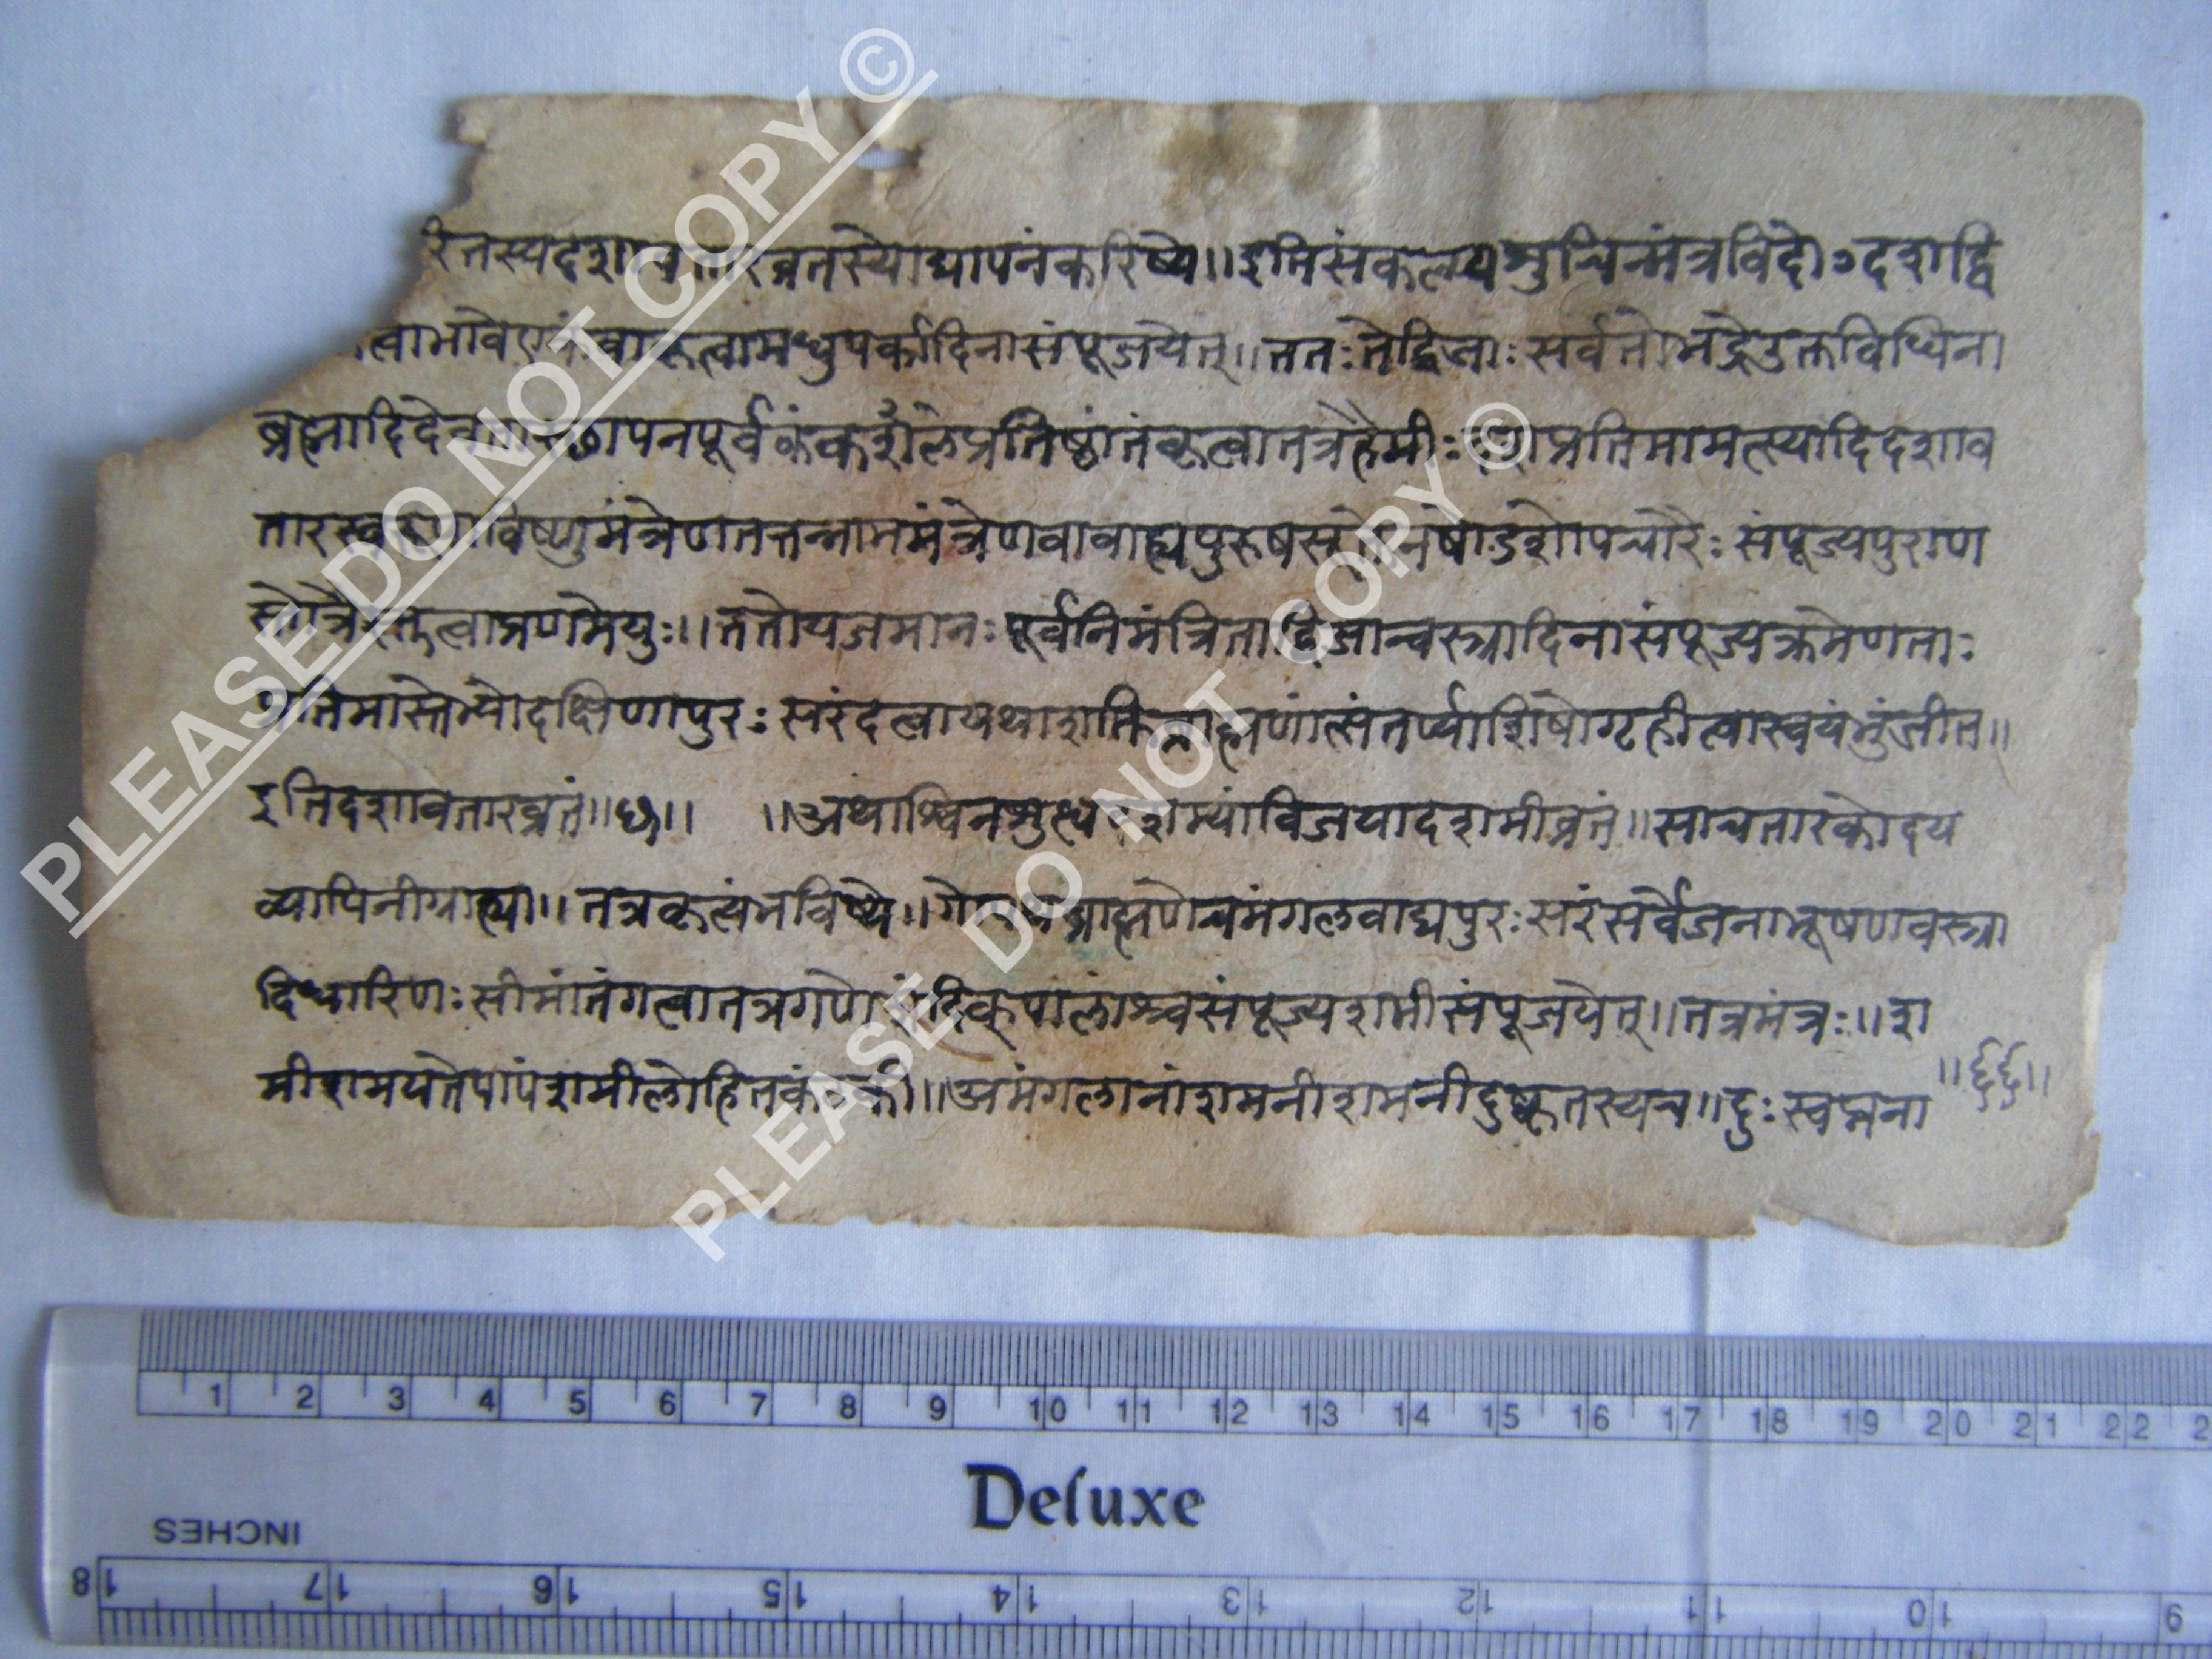 रितस्यदशावतारव्रतस्योद्यापनंकरिष्ये॥इतिसंकल्प्यशुचिन्मंत्रविदोऽदशद्वि
त्वाभावेएकंवावृत्वामधुपर्कादिनासंपूजयेत्॥ततःतेद्विजाःसर्वतोभद्रेउक्तविधिना
ब्रह्मादिदेवतास्थापनपूर्वकंकशंलेप्रतिष्ठांतंकृत्वातत्रहैमीःप्रतिमामत्स्यादिदशाव
तारस्वरूपाविष्णुमंत्रेणतत्तन्नाममंत्रेणवावाह्यपुरुषसूक्तेनषोडशोपचारैःसंपूज्यपुराण
स्तोत्रैस्तुत्वाप्रणमेयुः॥ततोयजमानःपूर्वनिमंत्रिताद्विजान्वस्त्रादिनासंपूज्यक्रमेणताः
प्रतिमास्तेभ्योदक्षिणापुरःसरंदत्वायथाशक्तिब्राह्मणांत्संतर्प्याशिषोगृहीत्वास्वयंभुंजीत॥
इतिदशावतारव्रतं॥छ॥ ॥अथाश्विनशुक्लदशम्यांविजयादशमीव्रतं॥साचतारकोदय
व्यापिनीग्राह्या॥तत्रकृत्यंभविष्ये॥ब्राह्मणैश्चमंगलवाद्यपुरःसरंसर्वेजनाभूषणवस्त्रा
दिधारिणःसीमांतंगत्वातत्रगणेशंदिक्पालांश्चसंपूज्यशमीसंपूजयेत्॥तत्रमंत्रः॥श
मीशमयतेपापंशमीलोहितकंटकी॥अमंगलानांशमनीशमनीदुष्कृतस्यच॥दुःस्वप्नना
॥६६॥
PLEASE DO NOT COPY ©
PLEASE DO NOT COPY ©
1 2 3 4 5 6 7 8 9 10 11 12 13 14 15 16 17 18 19 20 21 22 2
Deluxe
INCHES
18 17 16 15 14 13 12 11 10 9